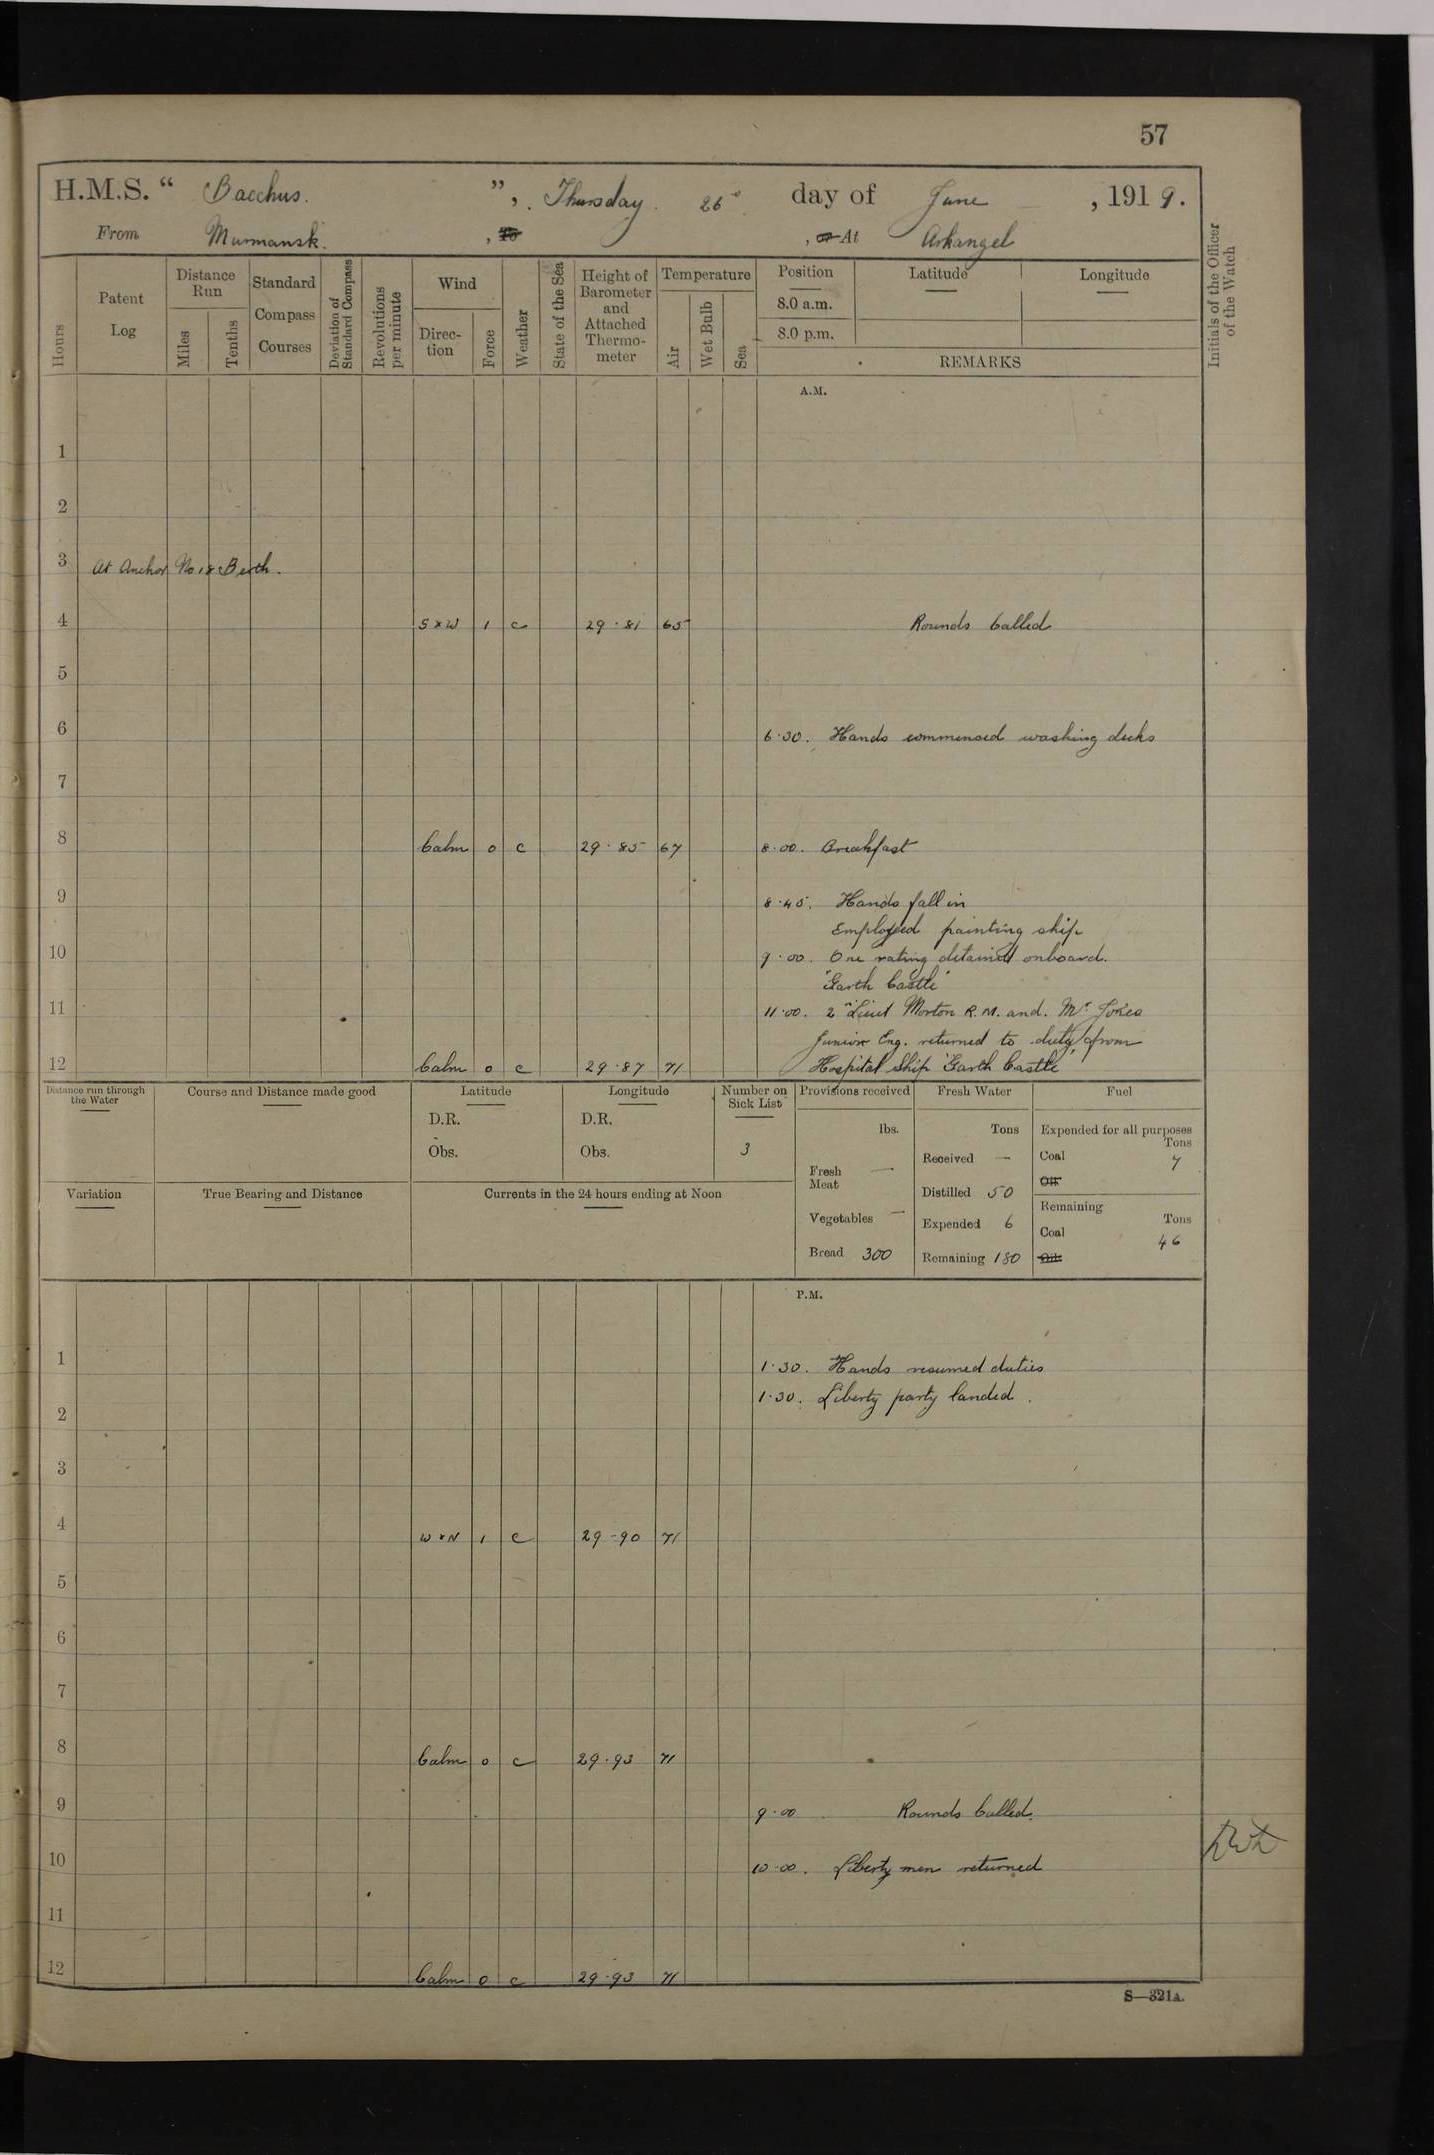 57
H.M.S. “ Bacchus. ”, Thursday 26 day of June , 1919.
From Murmansk. , To , or At Arkangel
Hours
Patent Log
Distance Run
Miles
Tenths
Standard Compass Courses
Deviation of Standard Compass
Revolutions per minute
Wind
Direction
Force
Weather
State of the Sea
Height of Barometer and Attached Thermometer
Temperature
Air
Wet Bulb
Sea
Position
8.0 a.m.
8.0 p.m.
Latitude
Longitude
REMARKS
Initials of the Officer of the Watch
A.M.
1
2
3 At Anchor No 18 Berth.
4 S x W 1 c 29.81 65 Rounds Called
5
6 6.30. Hands commenced washing decks
7
8 Calm 0 c 29.85 67 8.00. Breakfast
9 8.45. Hands fall in
Employed painting ship
10 9.00. One rating detained onboard.
"Garth Castle"
11 11.00. 2" Lieut Morton R.M. and. Mr
Junior Eng. returned to duty from
12 Calm 0 c 29.87 71 Hospital Ship "Garth Castle"
Distance run through the Water
Course and Distance made good
Latitude
D.R.
Obs.
Longitude
D.R.
Obs.
Number on Sick List
3
Provisions received
lbs.
Fresh Meat —
Vegetables —
Bread 300
Fresh Water
Tons
Received —
Distilled 50
Expended 6
Remaining 180
Fuel
Expended for all purposes
Tons
Coal 7
Oil
Remaining
Tons
Coal 46
Oil
Variation
True Bearing and Distance
Currents in the 24 hours ending at Noon
P.M.
1 1.30. Hands resumed duties
2 1.30. Liberty party landed.
3
4 W x N 1 c 29.90 71
5
6
7
8 Calm 0 c 29.93 71
9 9.00 Rounds Called.
10 10.00. Liberty men returned
11
12 Calm 0 c 29.93 71
S—321A.